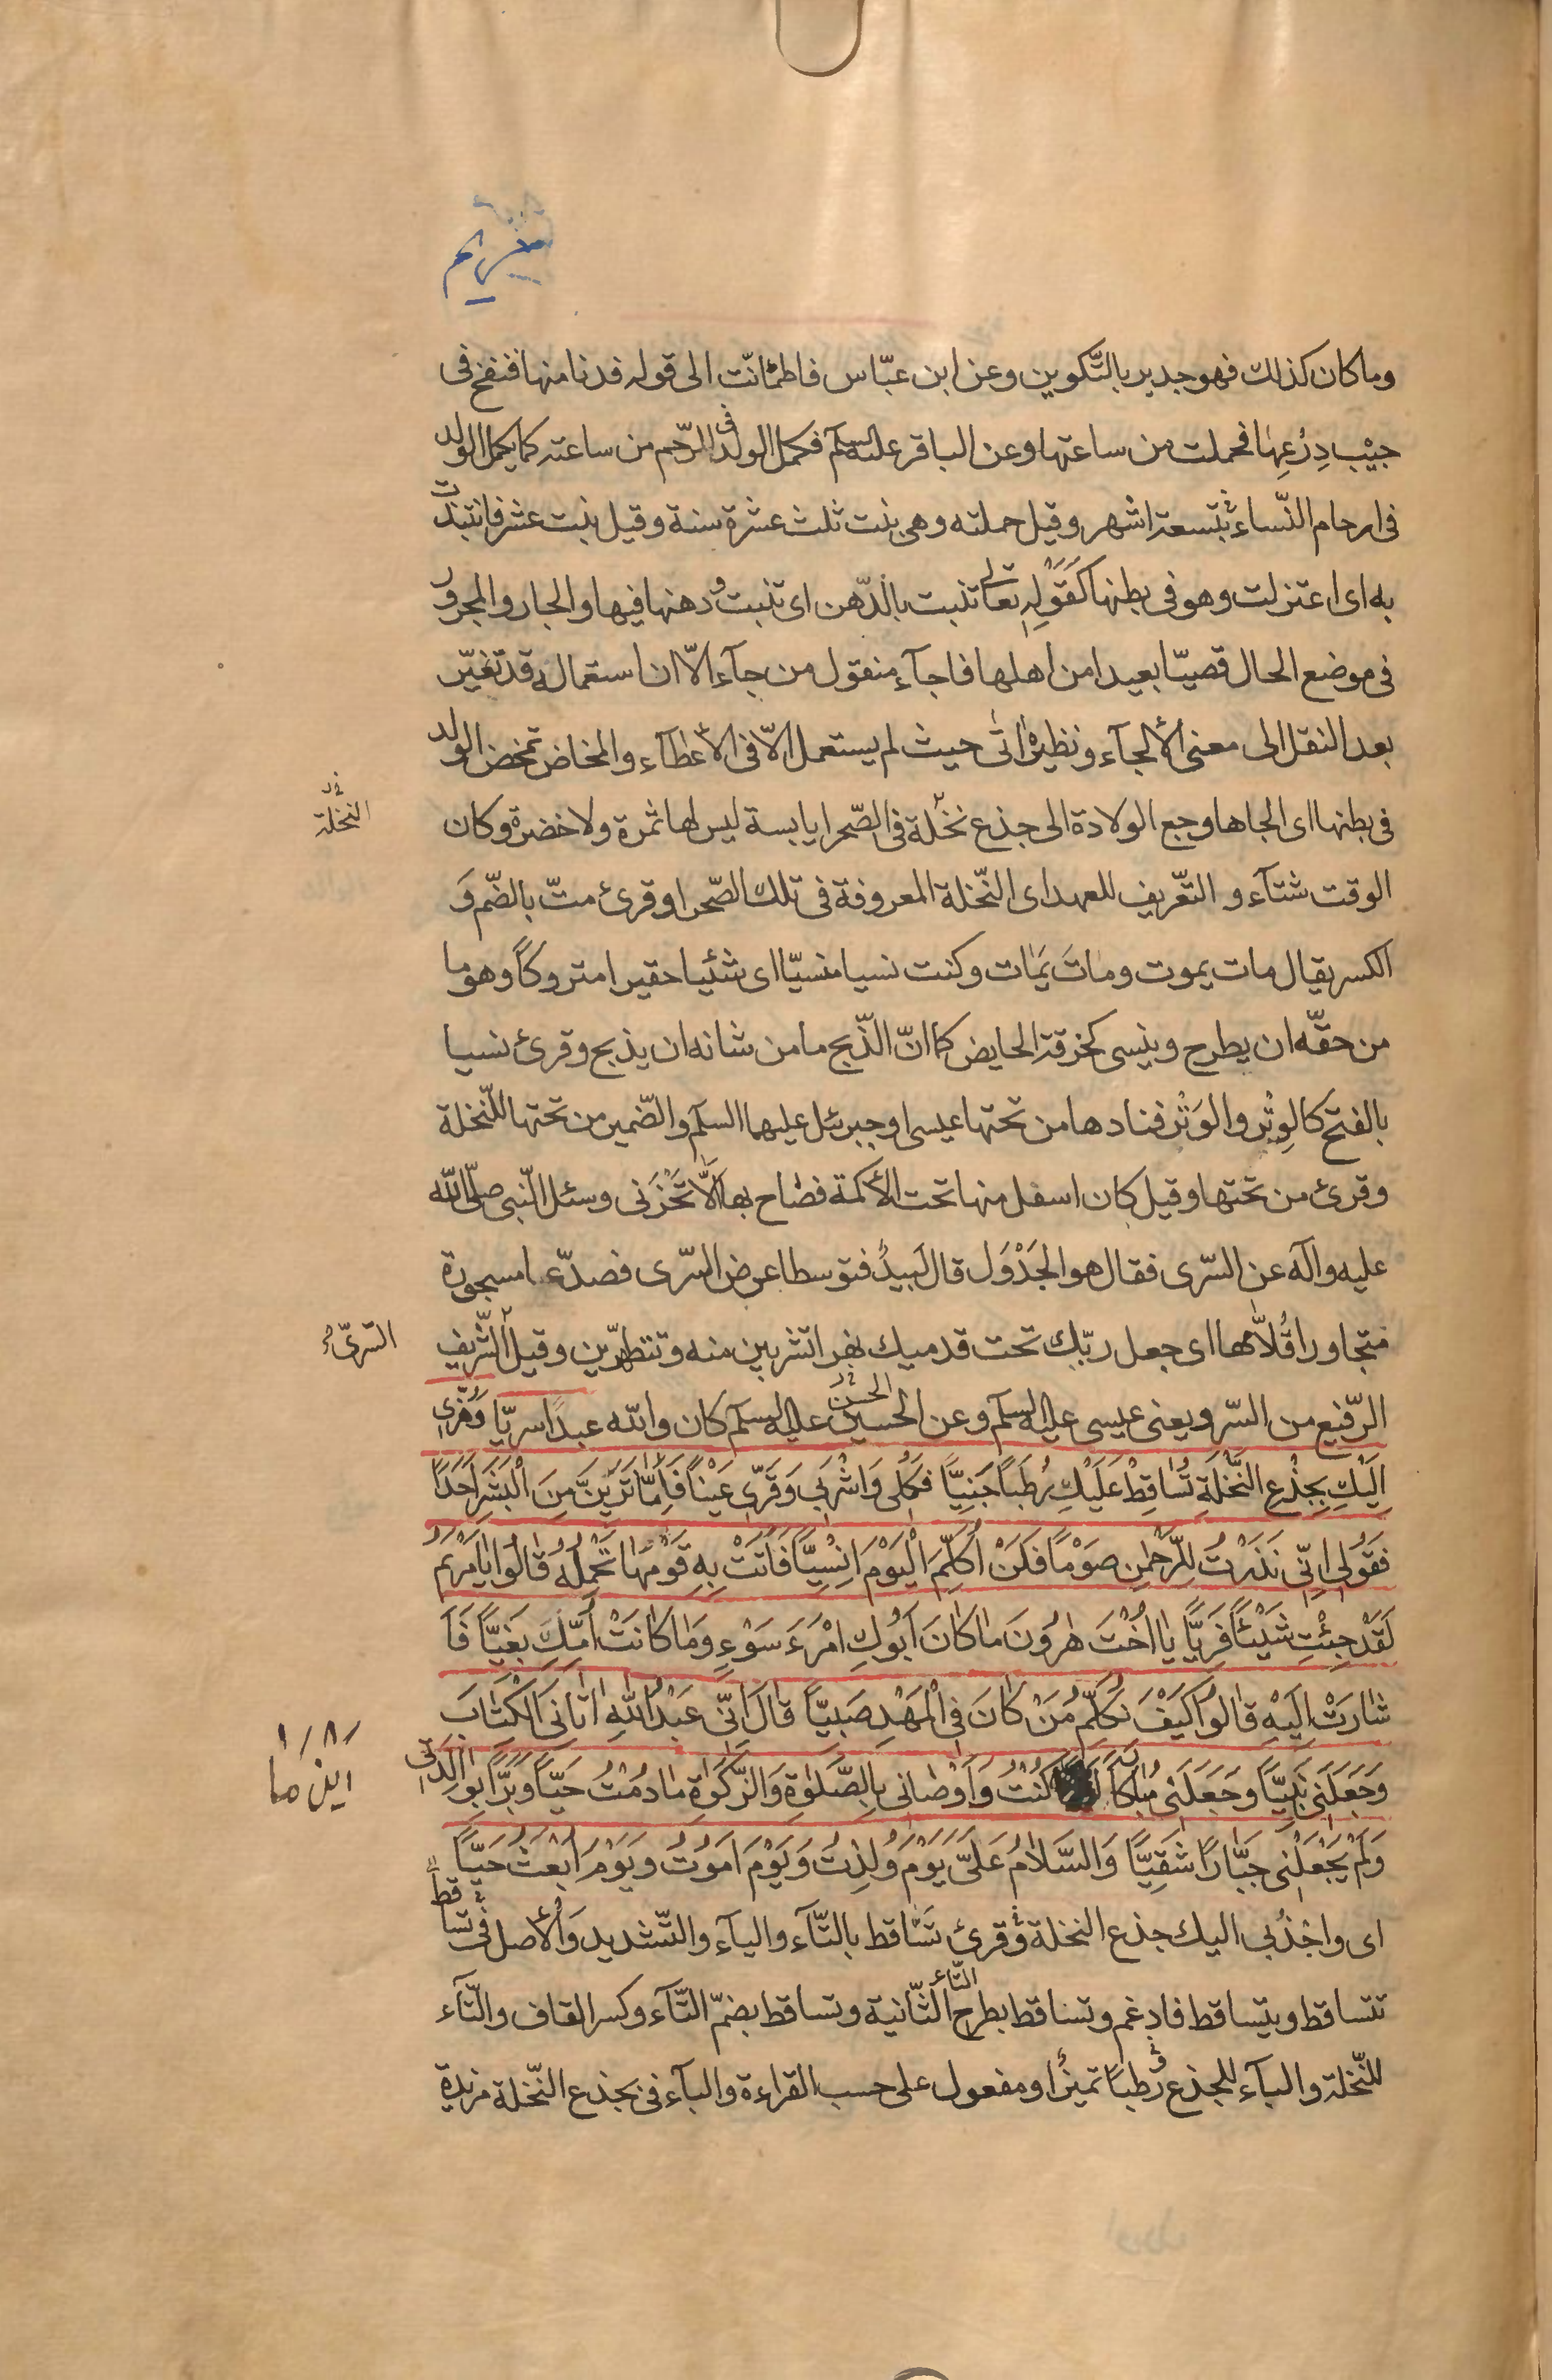 مريم
وما كان كذلك فهو جدير بالتّكوين وعن ابن عبّاس فاطمانّت الى قوله فدنا منها فنفخ فى
جيْب دِرْعِها فحملت من ساعتها وعن الباقر عليه السلم فكمل الولد فى الرّحم من ساعته كما يكمل الولد
فى ارحام النّساء بتسعة اشهر وقيل حملته وهى بنت ثلث عشرة سنة وقيل بنت عشر فانتبذت
به اى اعتزلت وهو فى بطنها كَقَوْلِهِ تعالى تنبت بالدّهن اى تنبت و دهنها فيها والجار والمجرور
فى موضع الحال قصيّا بعيدا من اهلها فاجآء منقول من جآء الّا ان استعماله قد تغيّر
بعد النقل الى معنى الألجآء ونظيره اتى حيث لم يستعمل الّا فى الأعطآء والمخاض تمخض الولد
فى بطنها اى الجاها وجع الولادة الى جذع نخلة فى الصّحرا يابسة ليس لها ثمرة ولا خضرة وكان
النخلة
الوقت شتآء و التعّريف للعهد اى النّخلة المعروفة فى تلك الصّحرا وقرئ متّ بالضّم وَ
الكسر يقال مات يموت وماتَ يَمٰات وكنت نسيا منسيّا اى شئيا حقيرا متروكاً وهو ما
من حقّه ان يطرح وينسى كخرقة الحايض كما انّ الذّبح ما من شانه ان يذبح وقرئ نسيا
بالفتح كالوِثْر والوَثْر فنادها من تحتها عيسى او جبرئل عليهما السلم والضّمير من تحتها للنّخلة
وقرئ من تحتها وقيل كان اسفل منها تحت الأكمة فصٰاح بها الَّا تَحْزَنى وسئل النّبى صلّى اللّه
عليه وآله عن السّرى فقال هو الجَدْوَل قال لَبيدٌ فتوسطا عرض السّرى فصدّعا مسجورة
متجاورا قُلاّمها اى جعل ربّك تحت قدميك نهرا تشربين منه وتتطهّرين وقيل الشّريف
السّرىّ
الرّفيع من السّرو يعنى عيسى عليه السلم وعن الحسين الحسن عليه السلم كان واللّه عبدًا سريّا وَهُزّى
اِلَيْكِ بِجِذْعِ النَّخْلَةِ تُسٰاقِطْ عَلَيْكِ رُطَباً جَنِيًّا فَكُلى وَاشْرَبى وَقَرّى عَيْناً فَاِمّٰا تَرَيِنَّ مِنَ الْبَشَرِ اَحَدًا
فَقُولى اِنّى نَذَرْتُ لِلرَّحْمٰنِ صَوْماً فَلَنْ اُكَلِّمَ الْيَوْمَ اِنْسِيًّا فَاَتَتْ بِهِ قَوْمَهٰا تَحْمِلُهُ قٰالُوا يٰا مَرْيَمُ
لَقَدْ جِئْتِ شَيْئاً فَرِيًّا يٰا اُخْتَ هٰرُونَ مٰا كٰانَ اَبُوكِ امْرَءَ سَوْءٍ وَمٰا كٰانَتْ اُمُّكِ بَغِيًّا فَاَ
شٰارَتْ اِلَيْهِ قٰالُوا كَيْفَ نُكَلِّمُ مَنْ كٰانَ فِى الْمَهْدِ صَبِيًّا قٰالَ اِنّى عَبْدُ اللّٰهِ اٰتٰانِىَ الْكِتٰابَ
وَجَعَلَنى نَبِيًّا وَجَعَلَنى مُبٰارَكاً كُنْتُ وَاَوْصٰانى بِالصَّلٰوةِ وَالزَّكٰوةِ مٰا دُمْتُ حَيًّا وَبَرًّا بِوٰالِدَتى
اين ما
وَلَمْ يَجْعَلْنى جَبّٰارًا شَقِيًّا وَالسَّلٰامُ عَلَىَّ يَوْمَ وُلِدْتُ وَيَوْمَ اَمُوتُ وَيَوْمَ اُبْعَثُ حَيًّا
اى واجْذُبى اليك جذع النخلة و قرئ تَسّٰاقط بالتّآء واليآء والتّشديد وَالأصل فى تسّاقط
تتساقط ويتساقط فادغم وتساقط بطرح التّاء الثّانية وتساقط بضمّ التّآء وكسر القاف والتّآء
للنّخلة واليآء للجذع و رطباً تميزٌ او مفعول على حسب القراءة والبآء فى بجذع النّخلة مزيدة